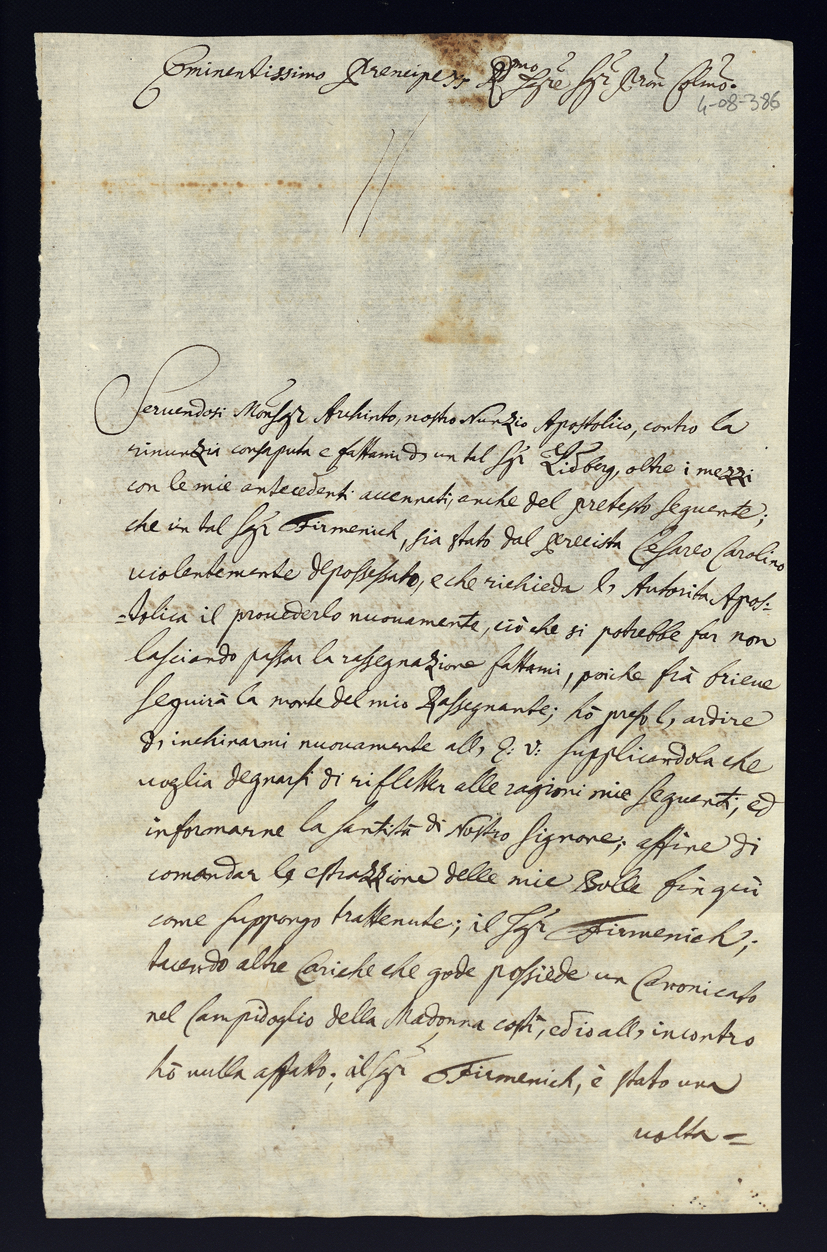 Eminentissimo Prencipe Rmo Sgre Sgr Pron Colmo.
4-08-386
Seruendosi Monsgr Archinto, nostro Nunzio Apostolico, contro la
rinunzia consaputa e fattami da un tal Sgr Lidberg, oltre i mezzi
con le mie antecedenti accennati, anche del pretesto seguente;
che un tal Sgr Firmenich, sia stato dal Precista Cesareo Carolino
uiolentemente depossessato, e che richieda l' Autorita Apos:
=tolica il prouederlo nuouamente, ciò che si potrebbe far non
lasciando passar la rassegnazione fattami, poiche frà brieue
seguirà la morte del mio Rassegnante; hò preso l' ardire
d' inchinarmi nuouamente all' E: V: supplicandola che
uoglia degnarsi di rifletter alle ragioni mie seguenti, ed
informarne la santità di Nostro Signore; affine di
comandar la estrazzione delle mie Bolle fin quì
come suppongo trattenute; il Sgr Firmenich;
tacendo altre Cariche che gode possiede un Canonicato
nel Campidoglio della Madonna costì, ed io all' incontro
hò nulla affatto; il Sgr Firmenich, è stato una
uolta=